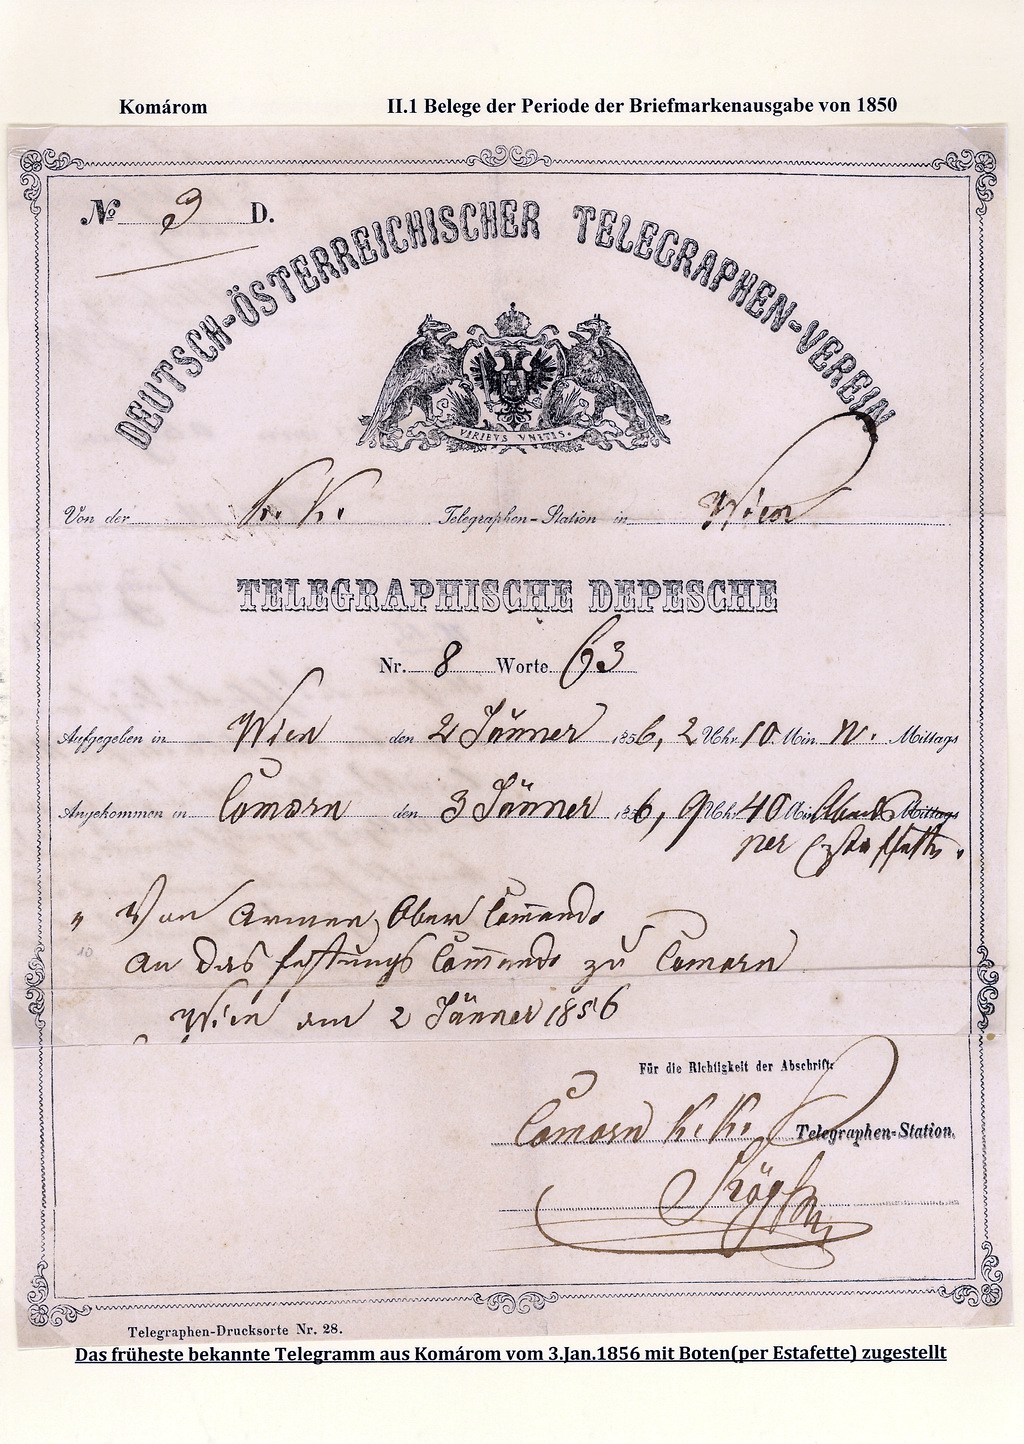 Komárom II.1 Belege der Periode der Briefmarkenausgabe von 1850
No 9 D.
DEUTSCH-ÖSTERREICHISCHER TELEGRAPHEN-VEREIN
VIRIBVS VNITIS.
Von der K. K. Telegraphen-Station in Wien
TELEGRAPHISCHE DEPESCHE
Nr. 8 Worte 63
Aufgegeben in Wien den 2 Jänner 1856, 2 Uhr 10 Min N. Mittags
Angekommen in Comorn den 3 Jänner 1856, 9 Uhr 40 Min Abends Mittags
per Estaffette.
" Von Armee Ober Commando
an das Festungs Commando zu Comorn
Wien am 2 Jänner 1856
Für die Richtigkeit der Abschrift:
Comorn K. K. Telegraphen-Station.
Telegraphen-Drucksorte Nr. 28.
Das früheste bekannte Telegramm aus Komárom vom 3.Jan.1856 mit Boten(per Estafette) zugestellt